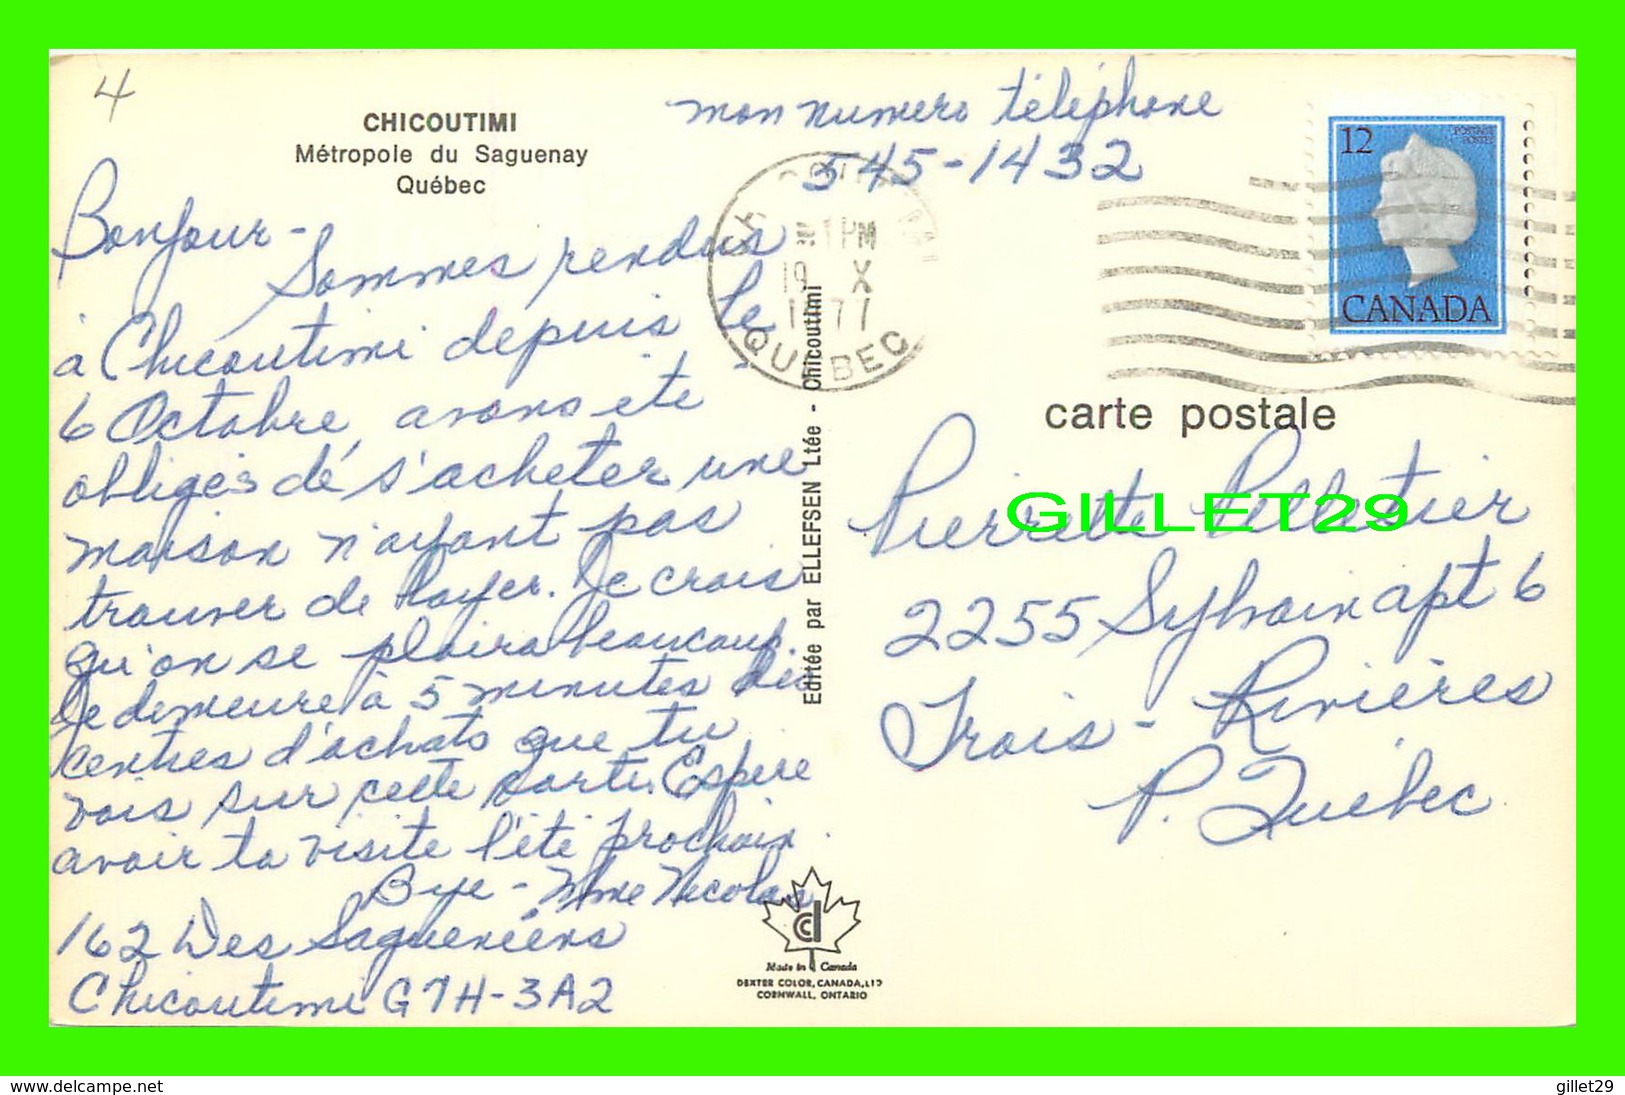 4
CHICOUTIMI
Métropole du Saguenay
Québec
mon numero téléphone
545-1432
Bonjour -
Sommes rendus
à Chicoutimi depuis le
6 Octobre, avons été
obligés dé s'acheter une
maison n'ayant pas
trouver de loyer. Je crois
qu'on se plaira beaucoup.
Je demeure à 5 minutes des
centres d'achats que tu
vois sur cette carte. Espere
avoir ta visite l'été prochain.
Bye - Mme Nicolas
162 Des Saguenéens
Chicoutimi G7H-3A2
1 PM
19 X
1977
QUEBEC
12
POSTAGE
POSTES
CANADA
carte postale
Pierrette Pelletier
2255 Sylvain apt 6
Trois-Rivières
P. Québec
GILLET29
Editée par ELLEFSEN Ltée - Chicoutimi
Made in Canada
DEXTER COLOR, CANADA, LTD
CORNWALL, ONTARIO
www.delcampe.net
gillet29